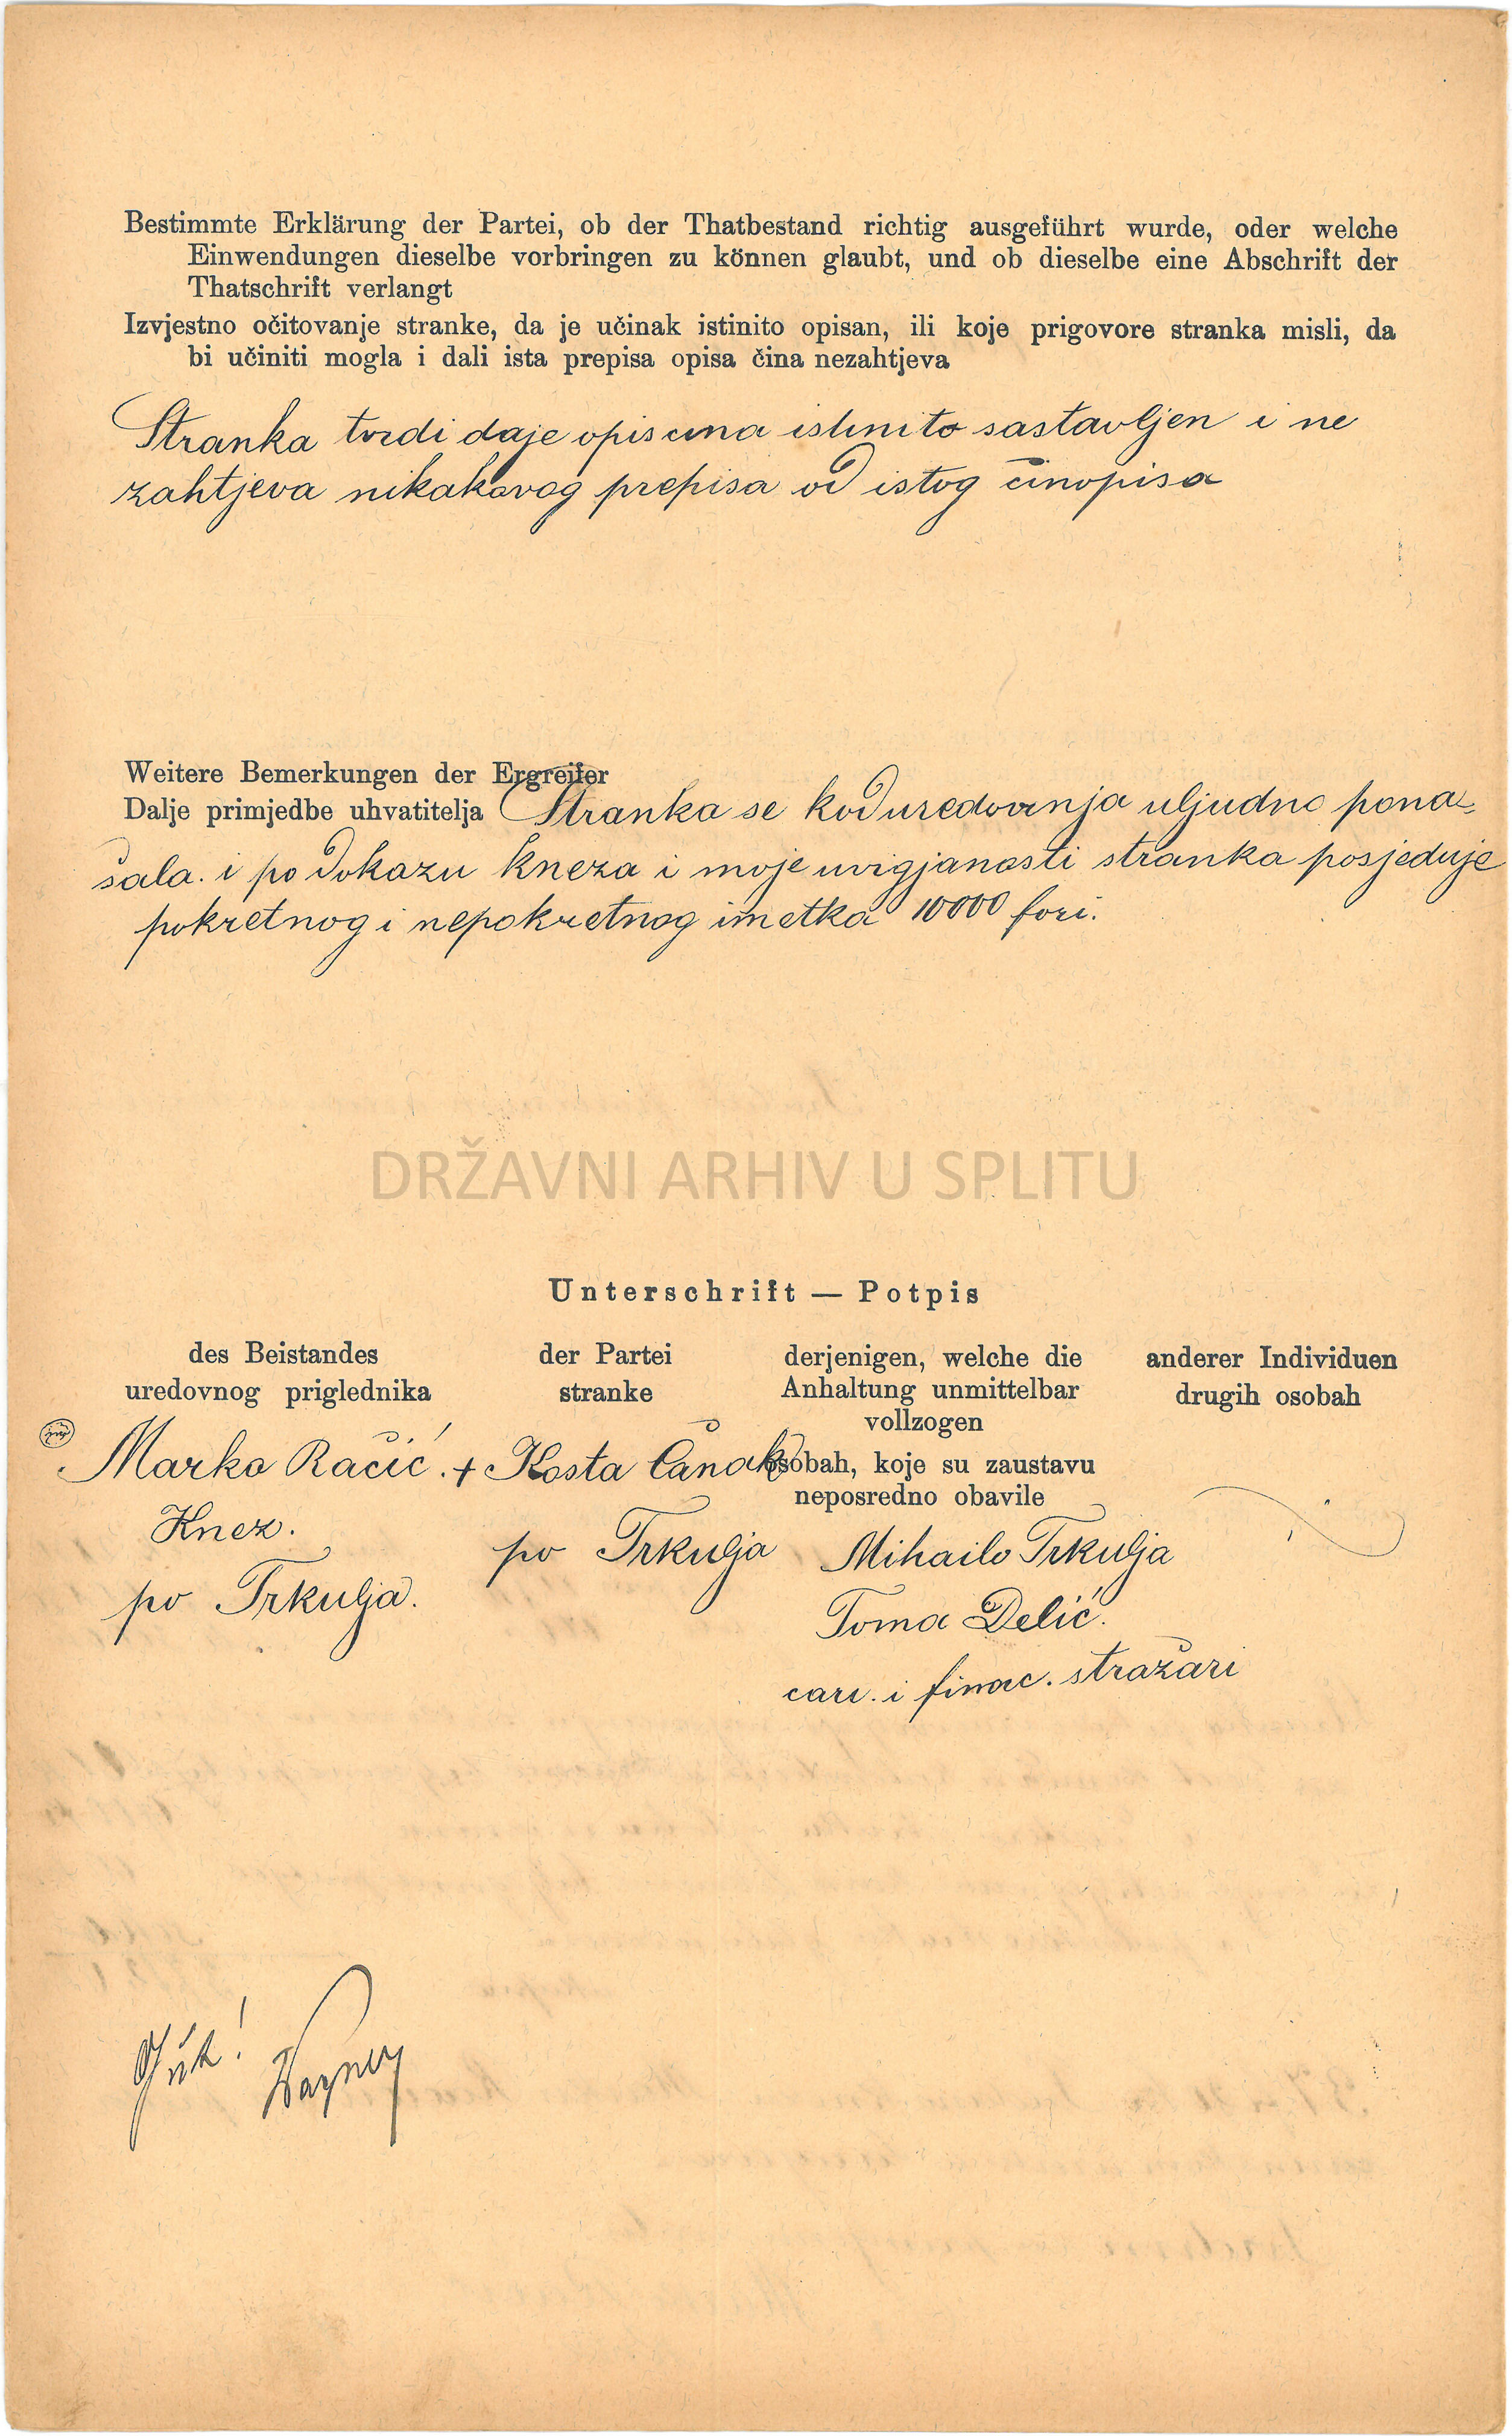 Bestimmte Erklärung der Partei, ob der Thatbestand richtig ausgeführt wurde, oder welche
Einwendungen dieselbe vorbringen zu können glaubt, und ob dieselbe eine Abschrift der
Thatschrift verlangt
Izvjestno očitovanje stranke, da je učinak istinito opisan, ili koje prigovore stranka misli, da
bi učiniti mogla i dali ista prepisa opisa čina nezahtjeva
Stranka tvrdi daje opis cina istinito sastavljen i ne
zahtjeva nikakovog prepisa od istog činopisa
Weitere Bemerkungen der Ergreifer
Dalje primjedbe uhvatitelja Stranka se kod uredovanja uljudno pona-
šala. i po dokazu kneza i moje uvigjanosti stranka posjeduje
pokretnog i nepokretnog imetka 10000 fori.
DRŽAVNI ARHIV U SPLITU
Unterschrift — Potpis
des Beistandes
uredovnog priglednika
der Partei
stranke
derjenigen, welche die
Anhaltung unmittelbar
vollzogen
osobah, koje su zaustavu
neposredno obavile
anderer Individuen
drugih osobah
Marko Račić. + Kosta Čanak
Knez.
po Trkulja.
po Trkulja
Mihailo Trkulja
Toma Delić.
cari. i finac. stražari
Wagner